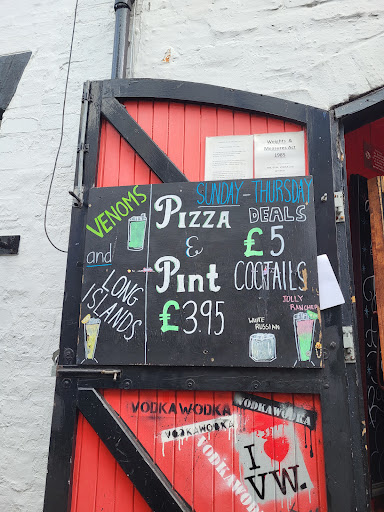 Weights &
Measures Act
1985
SUNDAY-THURSDAY
VENOMS
and
LONG
ISLANDS
PIZZA
&
PINT
£3.95
DEALS
£5
COCKTAILS
JOLLY
RANCHER
WHITE
RUSSIAN
VODKAWODKA
VODKAWODKA
VODKAWODKA
VODKAWODKA
I
VW.